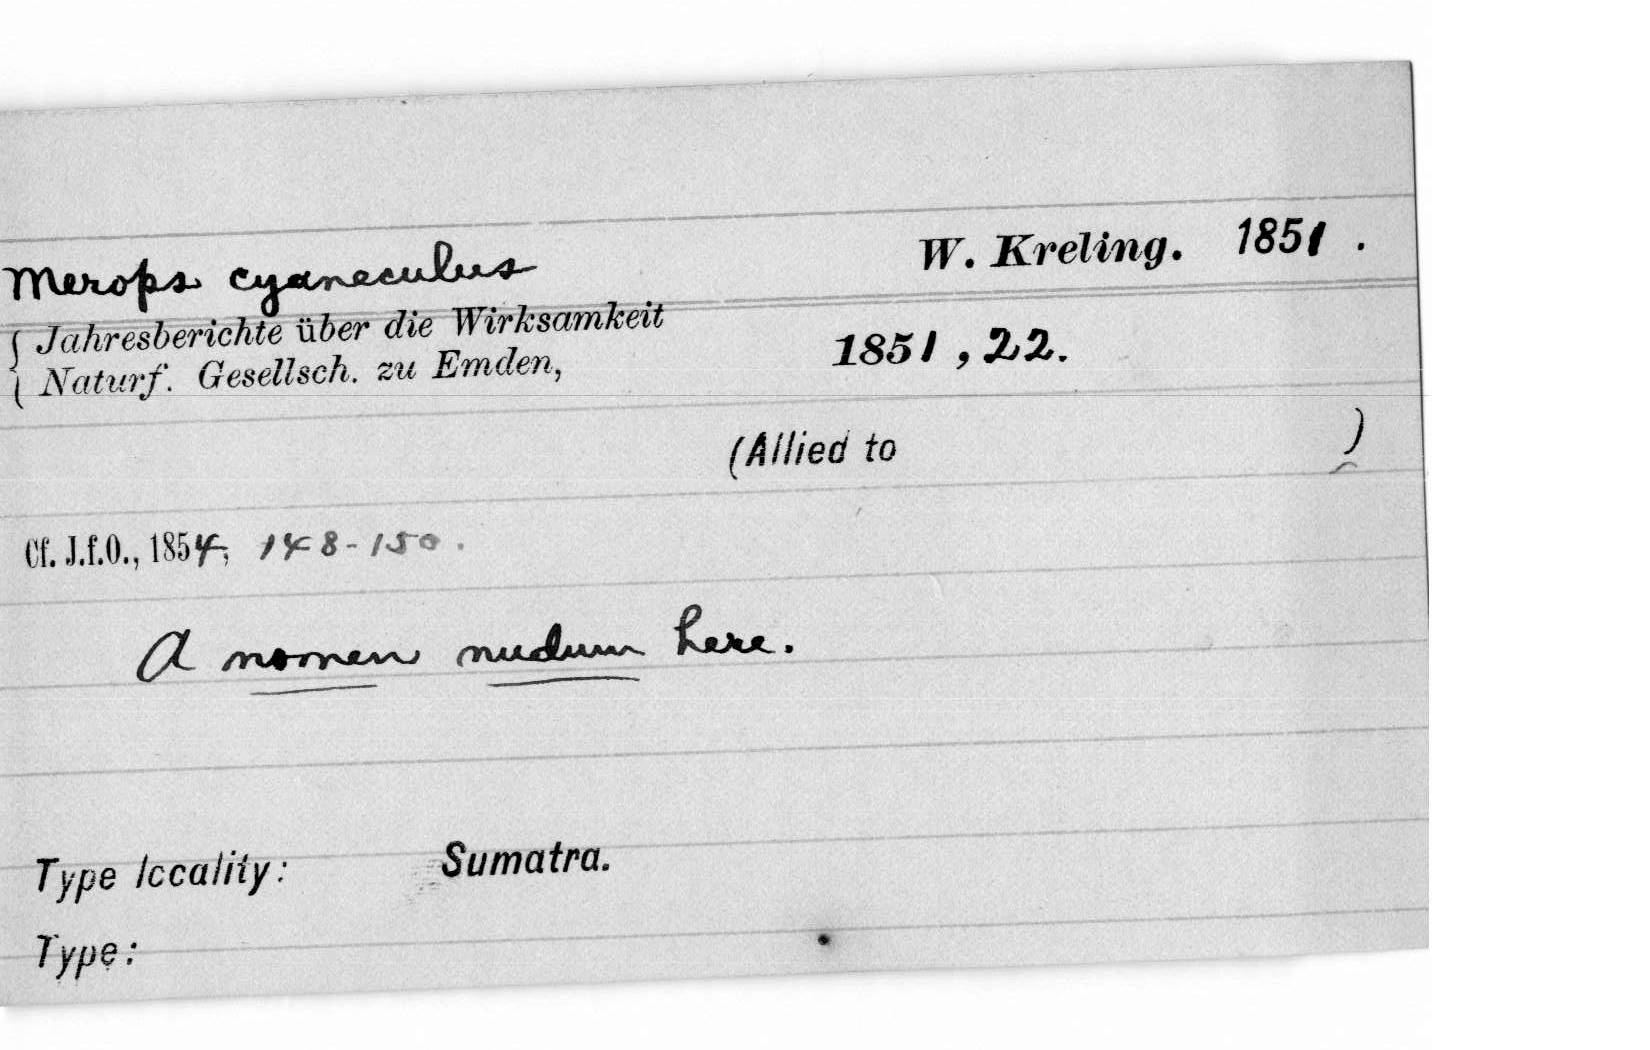 Merops cyaneculus W. Kreling. 1851.
{ Jahresberichte über die Wirksamkeit
{ Naturf. Gesellsch. zu Emden, 1851, 22.
(Allied to )
Cf. J.f.O., 1854, 148-150.
A nomen nudum here.
Type locality: Sumatra.
Type: